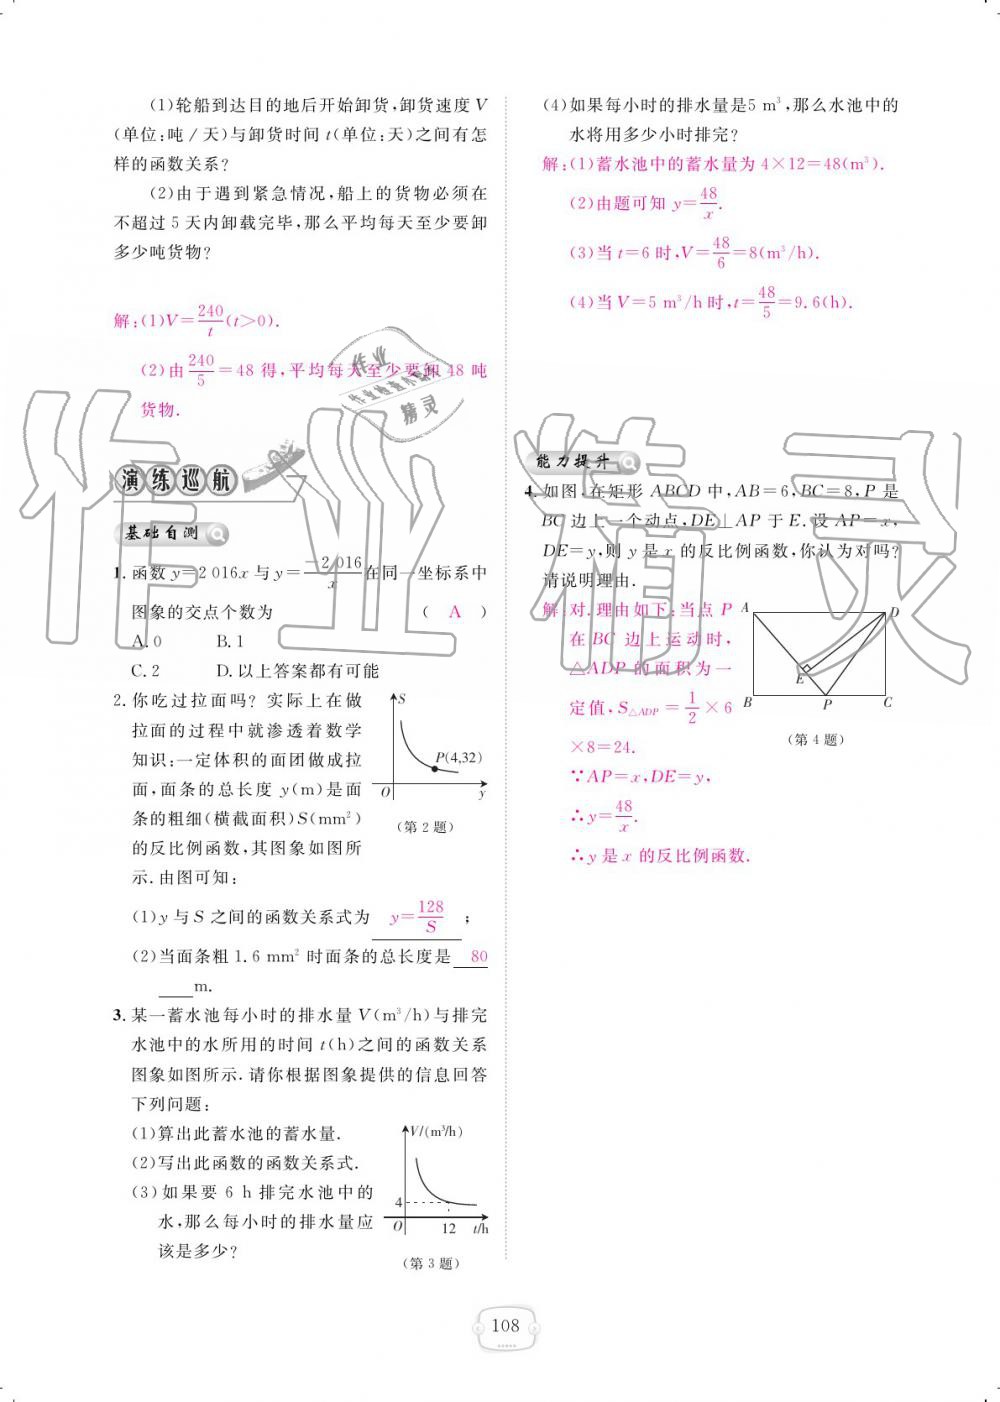 (1)轮船到达目的地后开始卸货,卸货速度 V
(单位:吨/天)与卸货时间 t(单位:天)之间有怎
样的函数关系?
(2)由于遇到紧急情况,船上的货物必须在
不超过 5 天内卸载完毕,那么平均每天至少要卸
多少吨货物?
解:(1)V=240/t(t>0).
(2)由240/5=48 得,平均每天至少要卸 48 吨
货物.
作业
作业检查小
精灵
演练巡航
基础自测
1. 函数 y=2 016x 与 y=−2 016/x在同一坐标系中
图象的交点个数为 ( A )
A. 0 B. 1
C. 2 D. 以上答案都有可能
2. 你吃过拉面吗? 实际上在做
拉面的过程中就渗透着数学
知识:一定体积的面团做成拉
面,面条的总长度 y(m)是面
条的粗细(横截面积)S(mm²)
的反比例函数,其图象如图所
示.由图可知:
S
P(4,32)
O y
(第 2 题)
(1)y 与 S 之间的函数关系式为 y=128/S ;
(2)当面条粗 1.6 mm² 时面条的总长度是 80
m.
3. 某一蓄水池每小时的排水量 V(m³/h)与排完
水池中的水所用的时间 t(h)之间的函数关系
图象如图所示.请你根据图象提供的信息回答
下列问题:
(1)算出此蓄水池的蓄水量.
(2)写出此函数的函数关系式.
(3)如果要 6 h 排完水池中的
水,那么每小时的排水量应
该是多少?
V/(m³/h)
4
O 12 t/h
(第 3 题)
(4)如果每小时的排水量是5 m³,那么水池中的
水将用多少小时排完?
解:(1)蓄水池中的蓄水量为 4×12=48(m³).
(2)由题可知 y=48/x.
(3)当 t=6 时,V=48/6=8(m³/h).
(4)当 V=5 m³/h 时,t=48/5=9.6(h).
能力提升
4. 如图,在矩形 ABCD 中,AB=6,BC=8,P 是
BC 边上一个动点,DE⊥AP 于 E.设 AP=x,
DE=y,则 y 是 x 的反比例函数,你认为对吗?
请说明理由.
解:对.理由如下:当点 P
在 BC 边上运动时,
△ADP 的面积为一
定值,S△ADP=1/2×6
×8=24.
∵AP=x,DE=y,
∴y=48/x.
∴y 是 x 的反比例函数.
A D
E
B P C
(第 4 题)
作业精灵
108